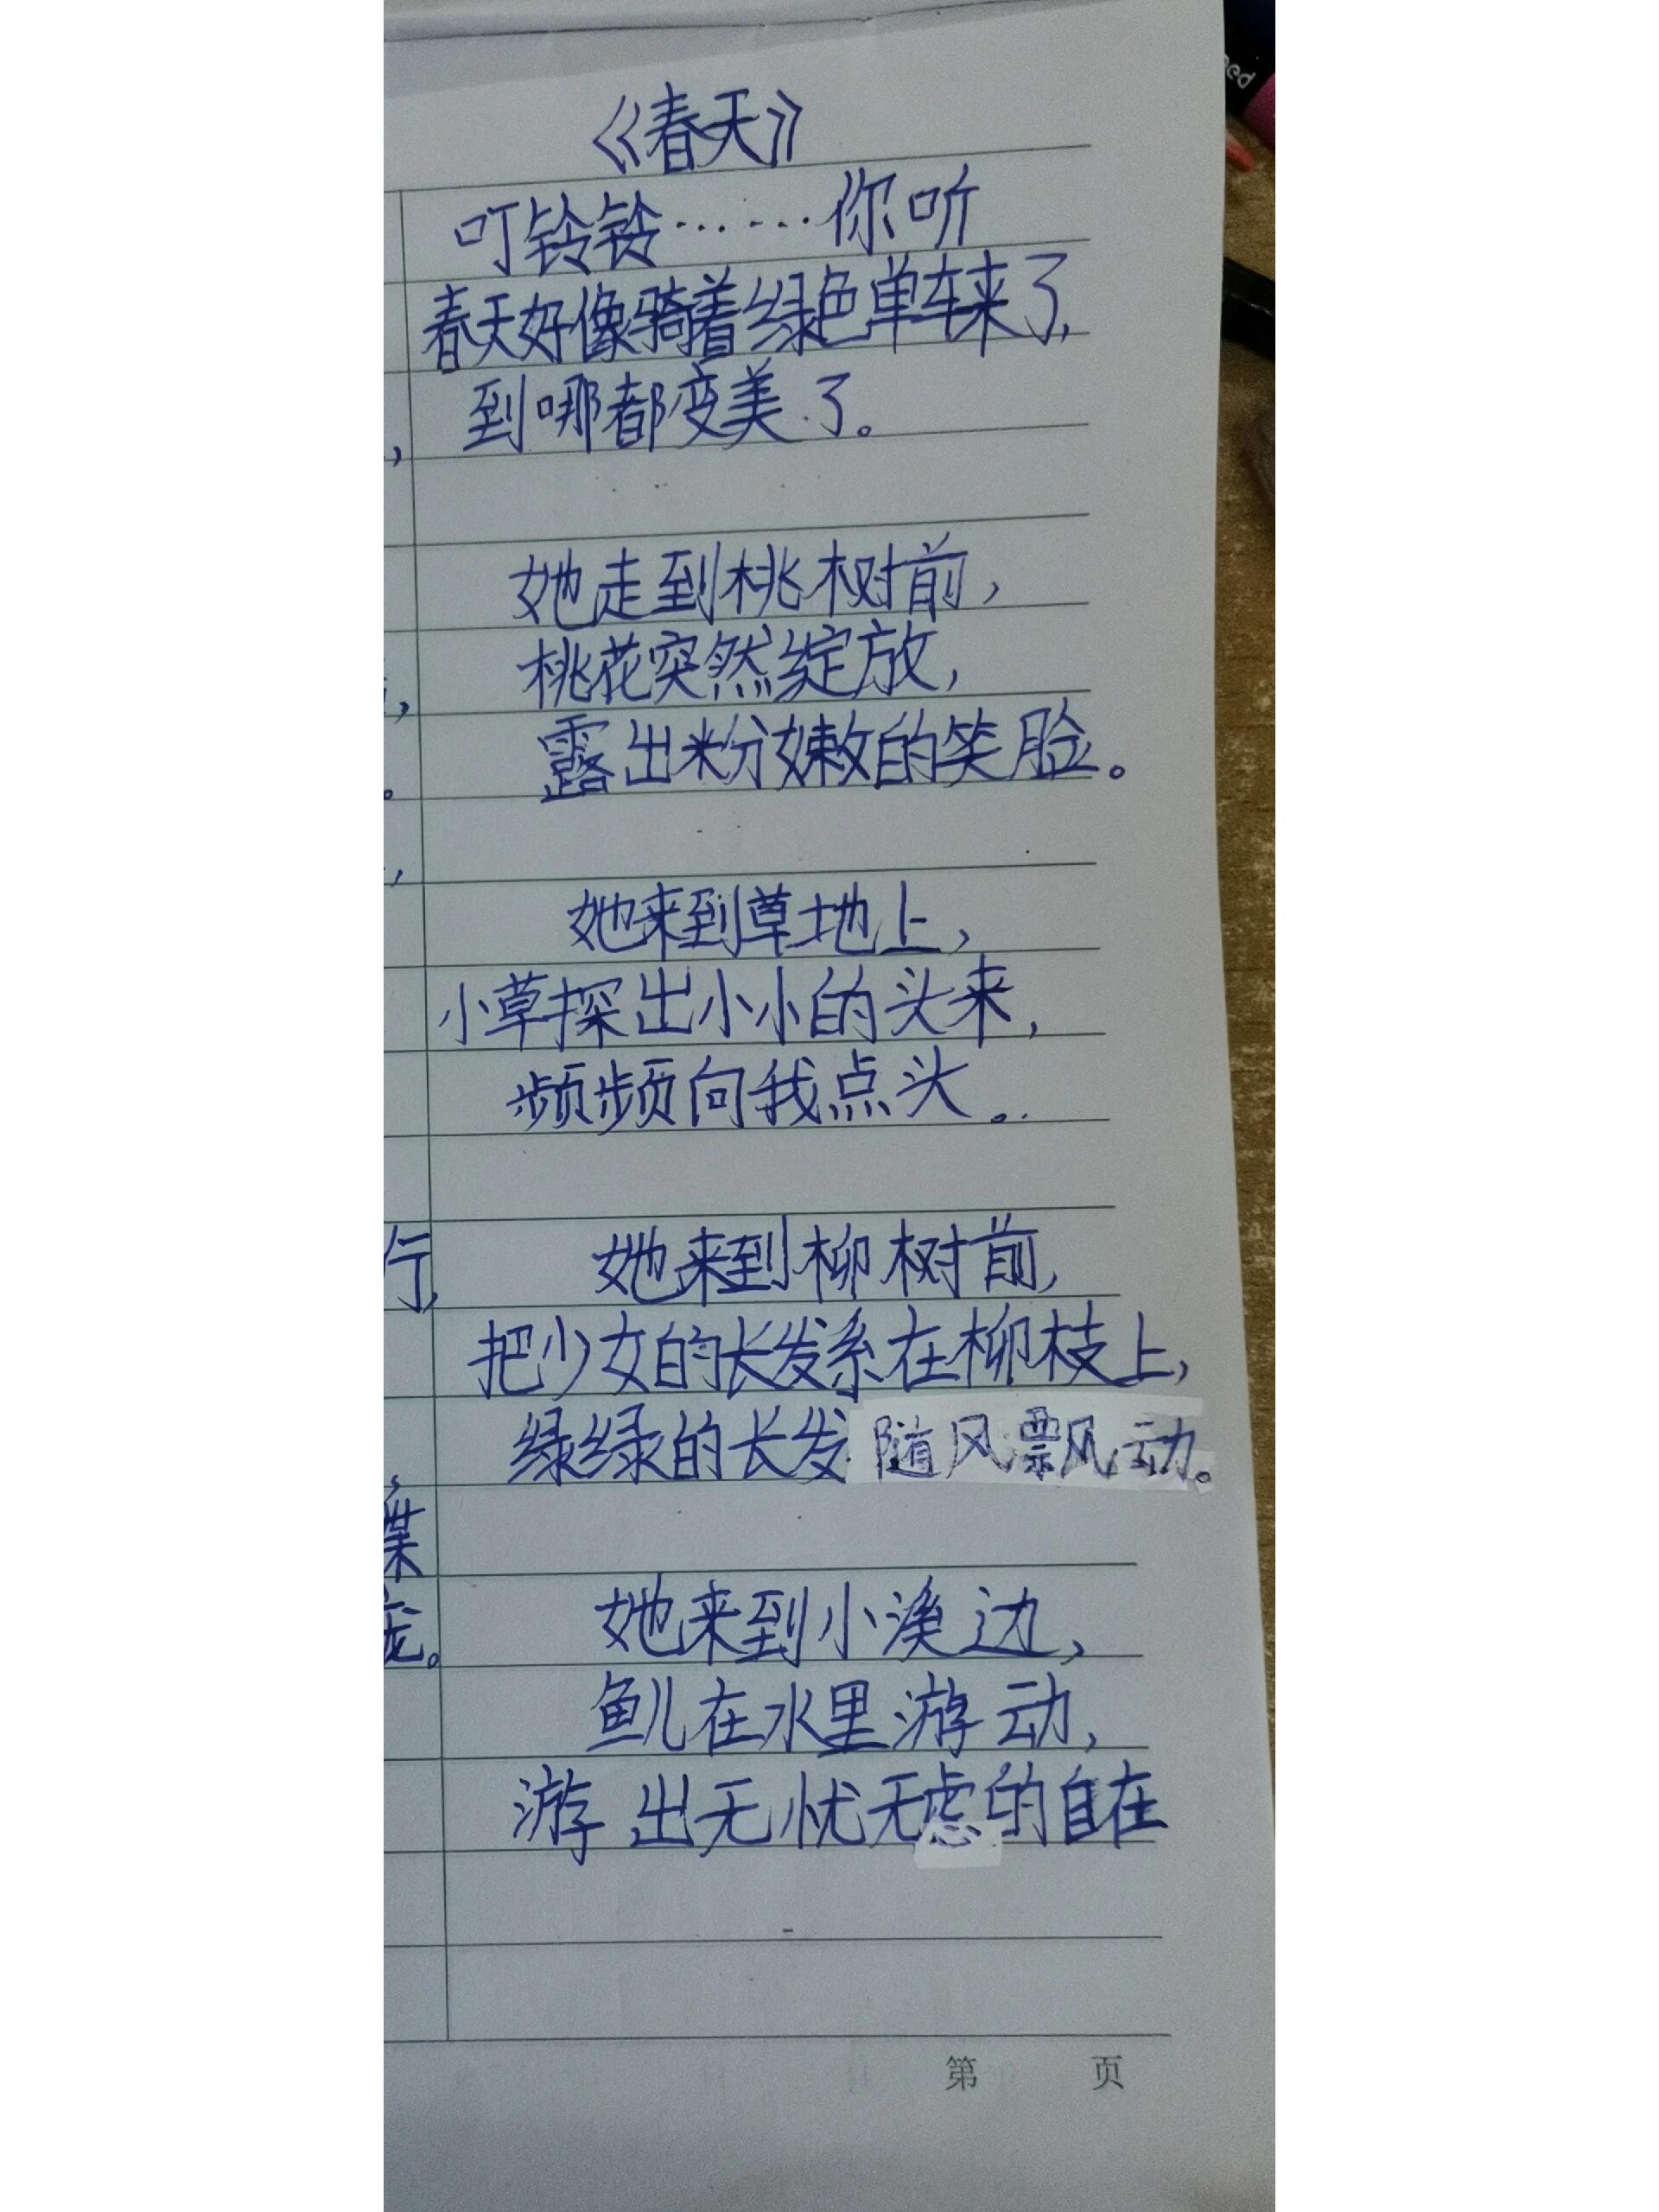 《春天》
叮铃铃……你听
春天好像骑着绿色单车来了,
到哪都变美了。
她走到桃树前,
桃花突然绽放,
露出粉嫩的笑脸。
她来到草地上,
小草探出小小的头来,
频频向我点头。
她来到柳树前,
把少女的长发系在柳枝上,
绿绿的长发随风飘动。
她来到小溪边,
鱼儿在水里游动,
游出无忧无虑的自在
第 页